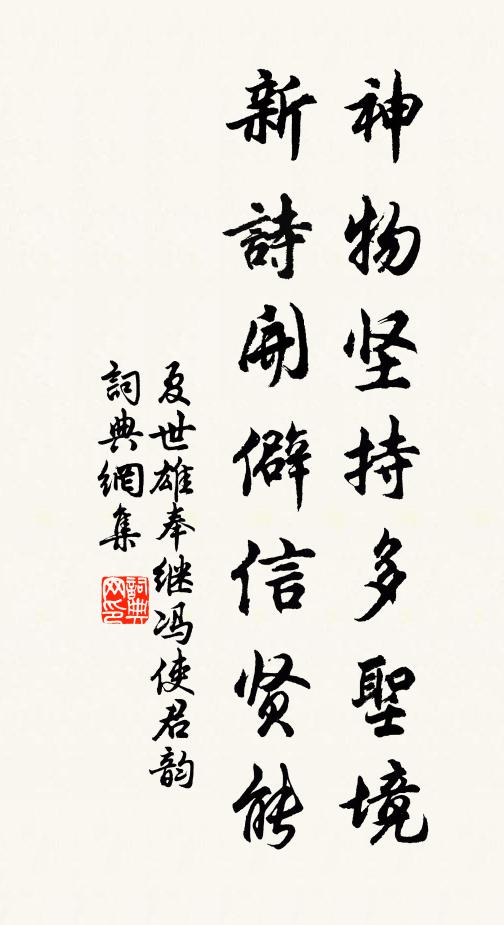 神物坚持多聖境
新詩開僻信贤能
夏世雄奉继冯使君韵
詞典網集
詞典网印